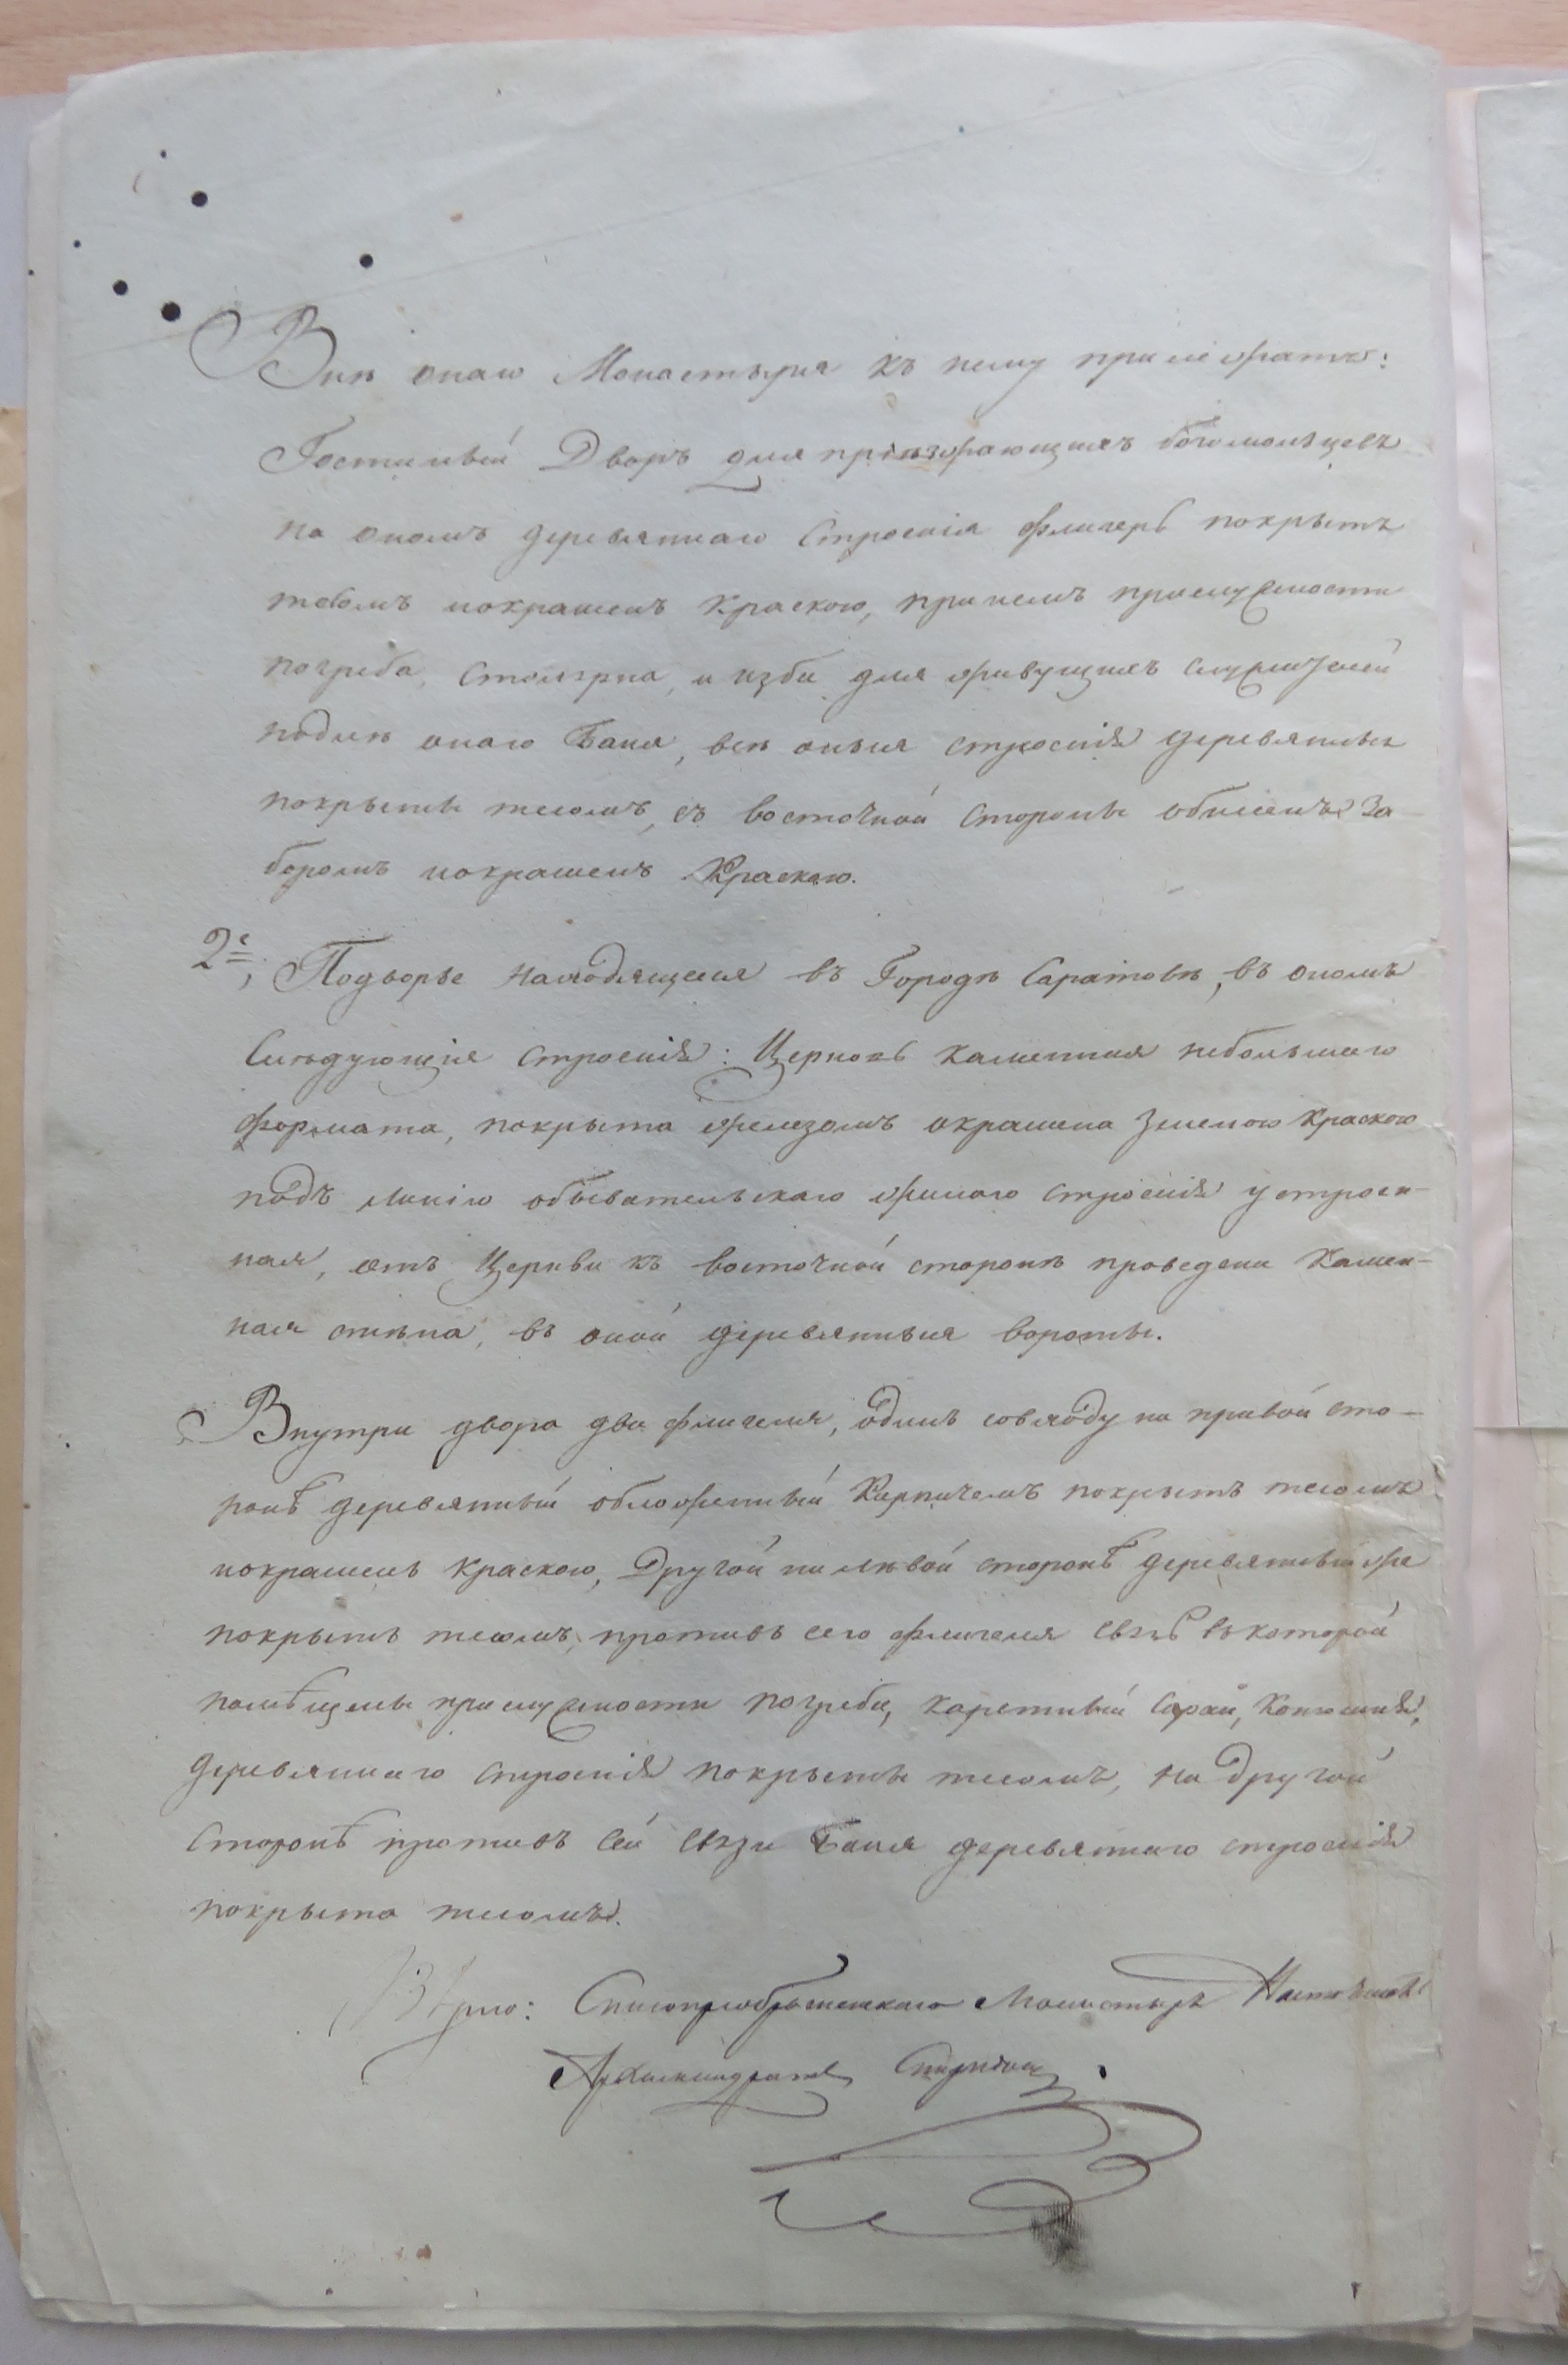 Внѣ онаго Монастыря къ нему принадлежатъ:
Гостиный Дворъ для пріѣзжающихъ богомольцевъ
на ономъ деревяннаго строенія флигерь покрытъ
тесомъ икрашенъ краскою, при немъ прислужности
погреба, столярна, и изба для живущихъ служителей
подлѣ онаго Баня, всѣ оныя строенія деревянные
покрыты тесомъ, съ восточной стороны обнесенъ за
боромъ икрашенъ Краскою.
2е, Подворье находящееся въ Городѣ Саратовѣ, въ ономъ
Слѣдующія строенія: Церковь каменная небольшаго
формата, покрыта желѣзомъ окрашена зеленою краскою
подъ линію обывательскаго жилаго строенія устроен-
ная, отъ Церкви къ восточной сторонѣ проведена Камен-
ная стѣна, въ оной деревянныя вороты.
Внутри двора два флигеля, одинъ совходу на правой сто-
ронѣ деревянный обложенный Кирпичемъ покрытъ тесомъ
икрашенъ краскою, Другой на лѣвой сторонѣ деревянный же
покрытъ тесомъ, противъ сего флигеля связь въкоторой
помѣщены прислужности погреба, каретный сарай, Конюшня,
деревяннаго строенія покрыты тесомъ, на другой
сторонѣ противъ сей связи Баня деревяннаго строенія
покрыта тесомъ.
Вѣрно: Спасопреображенскаго Монастыря Настоятель
Архимандритъ Спиридонъ